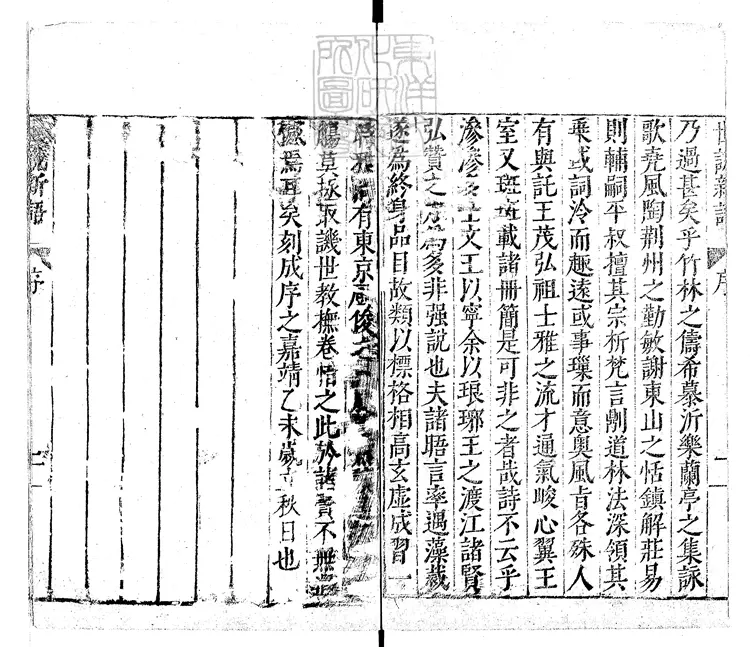 世說新語 序
乃過甚矣乎竹林之儔希慕沂樂蘭亭之集詠
歌堯風陶荆州之勤敏謝東山之恬鎮解莊易
則輔嗣平叔擅其宗析梵言則道林法深領其
乘或詞冷而趣遠或事瑣而意奧風旨各殊人
有興託王茂弘祖士雅之流才通氣峻心翼王
室又斑斑載諸冊簡是可非之者哉詩不云乎
濟濟士文王以寧余以琅琊王之渡江諸賢
弘贊之為多非强說也夫諸晤言率遇藻裁
遂為終身品目故類以標格相高玄虛成習一
時雅有東京俊之
觴莫拯取譏世教撫卷惜之此於諸賢不無
憾焉耳矣刻成序之嘉靖乙未歲立秋日也
說新語 序